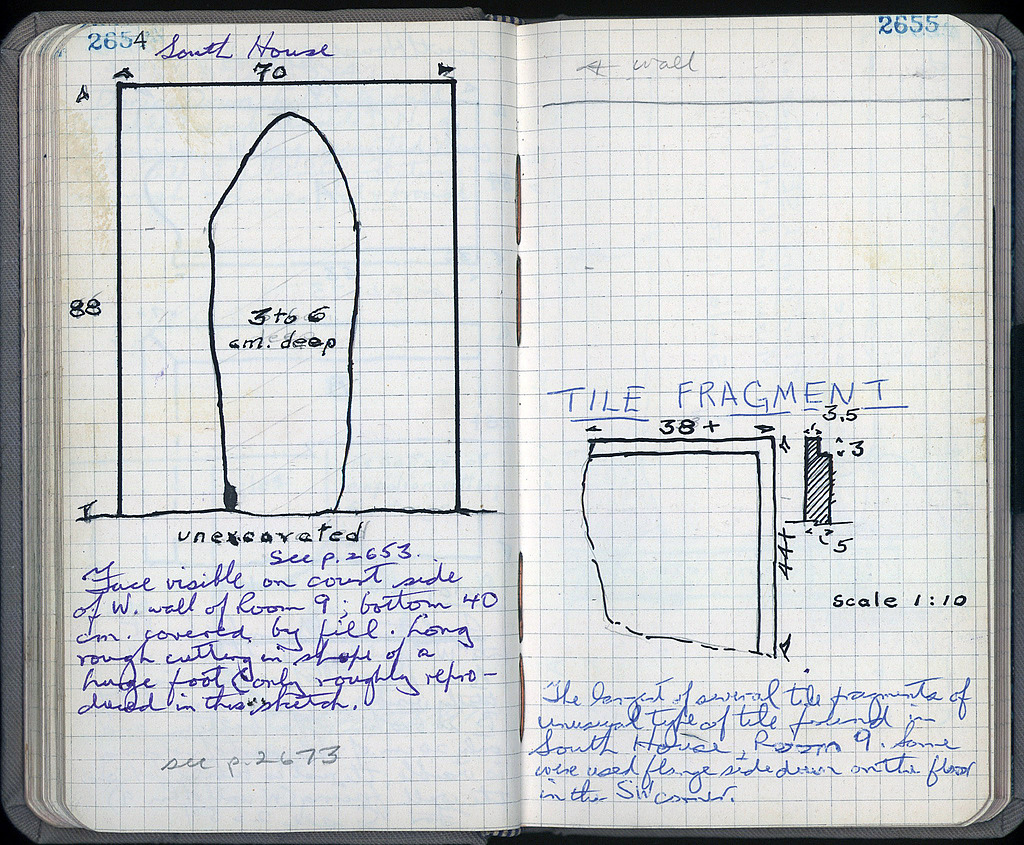 2654 South House
70
88
3 to 6
cm. deep
unexcavated
See p. 2653.
Face visible on court side
of W. wall of Room 9; bottom 40
cm. covered by fill. Long
rough cutting in shape of a
huge foot (only roughly repro-
duced in this sketch.
see p. 2673
2655
← wall
TILE FRAGMENT
38+
3.5
3
44+
5
Scale 1:10
The largest of several tile fragments of
unusual type of tile found in
South House, Room 9. Some
were used flange side down on the floor
in the SW corner.